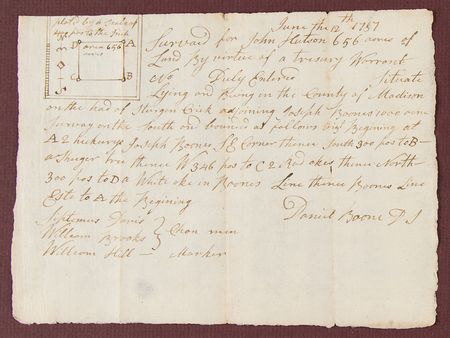 plotd by a Scale of
400 pos to the Inch
area 656
acres
A
B
C
D
June the 12th 1787
Survaid for John Hutson 656 acres of
Land By virtue of a tresury Warrant
No Duly Entered Situate
Lying and Being in the County of Madison
on the had of Sturgen Crick adjoining Joseph Boones 1000 acre
Survay on the South and bounded as follows viz Begining at
A 2 hickurys Joseph Boones SE Corner thence South 300 pos to B
a Shuger tree thence W 346 pos to C 2 Red okes thence North
300 pos to D a White oke in Boones Line thence Boones Line
Este to A the Begining
Septimus Davis
William Brooks } Chan men
William Hill — Marker
Daniel Boone D S